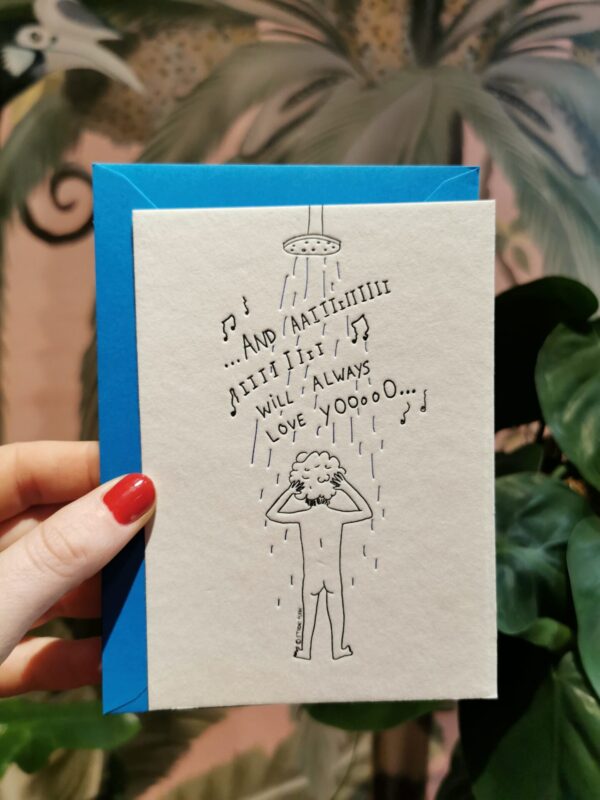 ...AND AAIIIIIIIIIII
IIIII IIII
WiLL ALWAYS
LOVE YOOOOO...